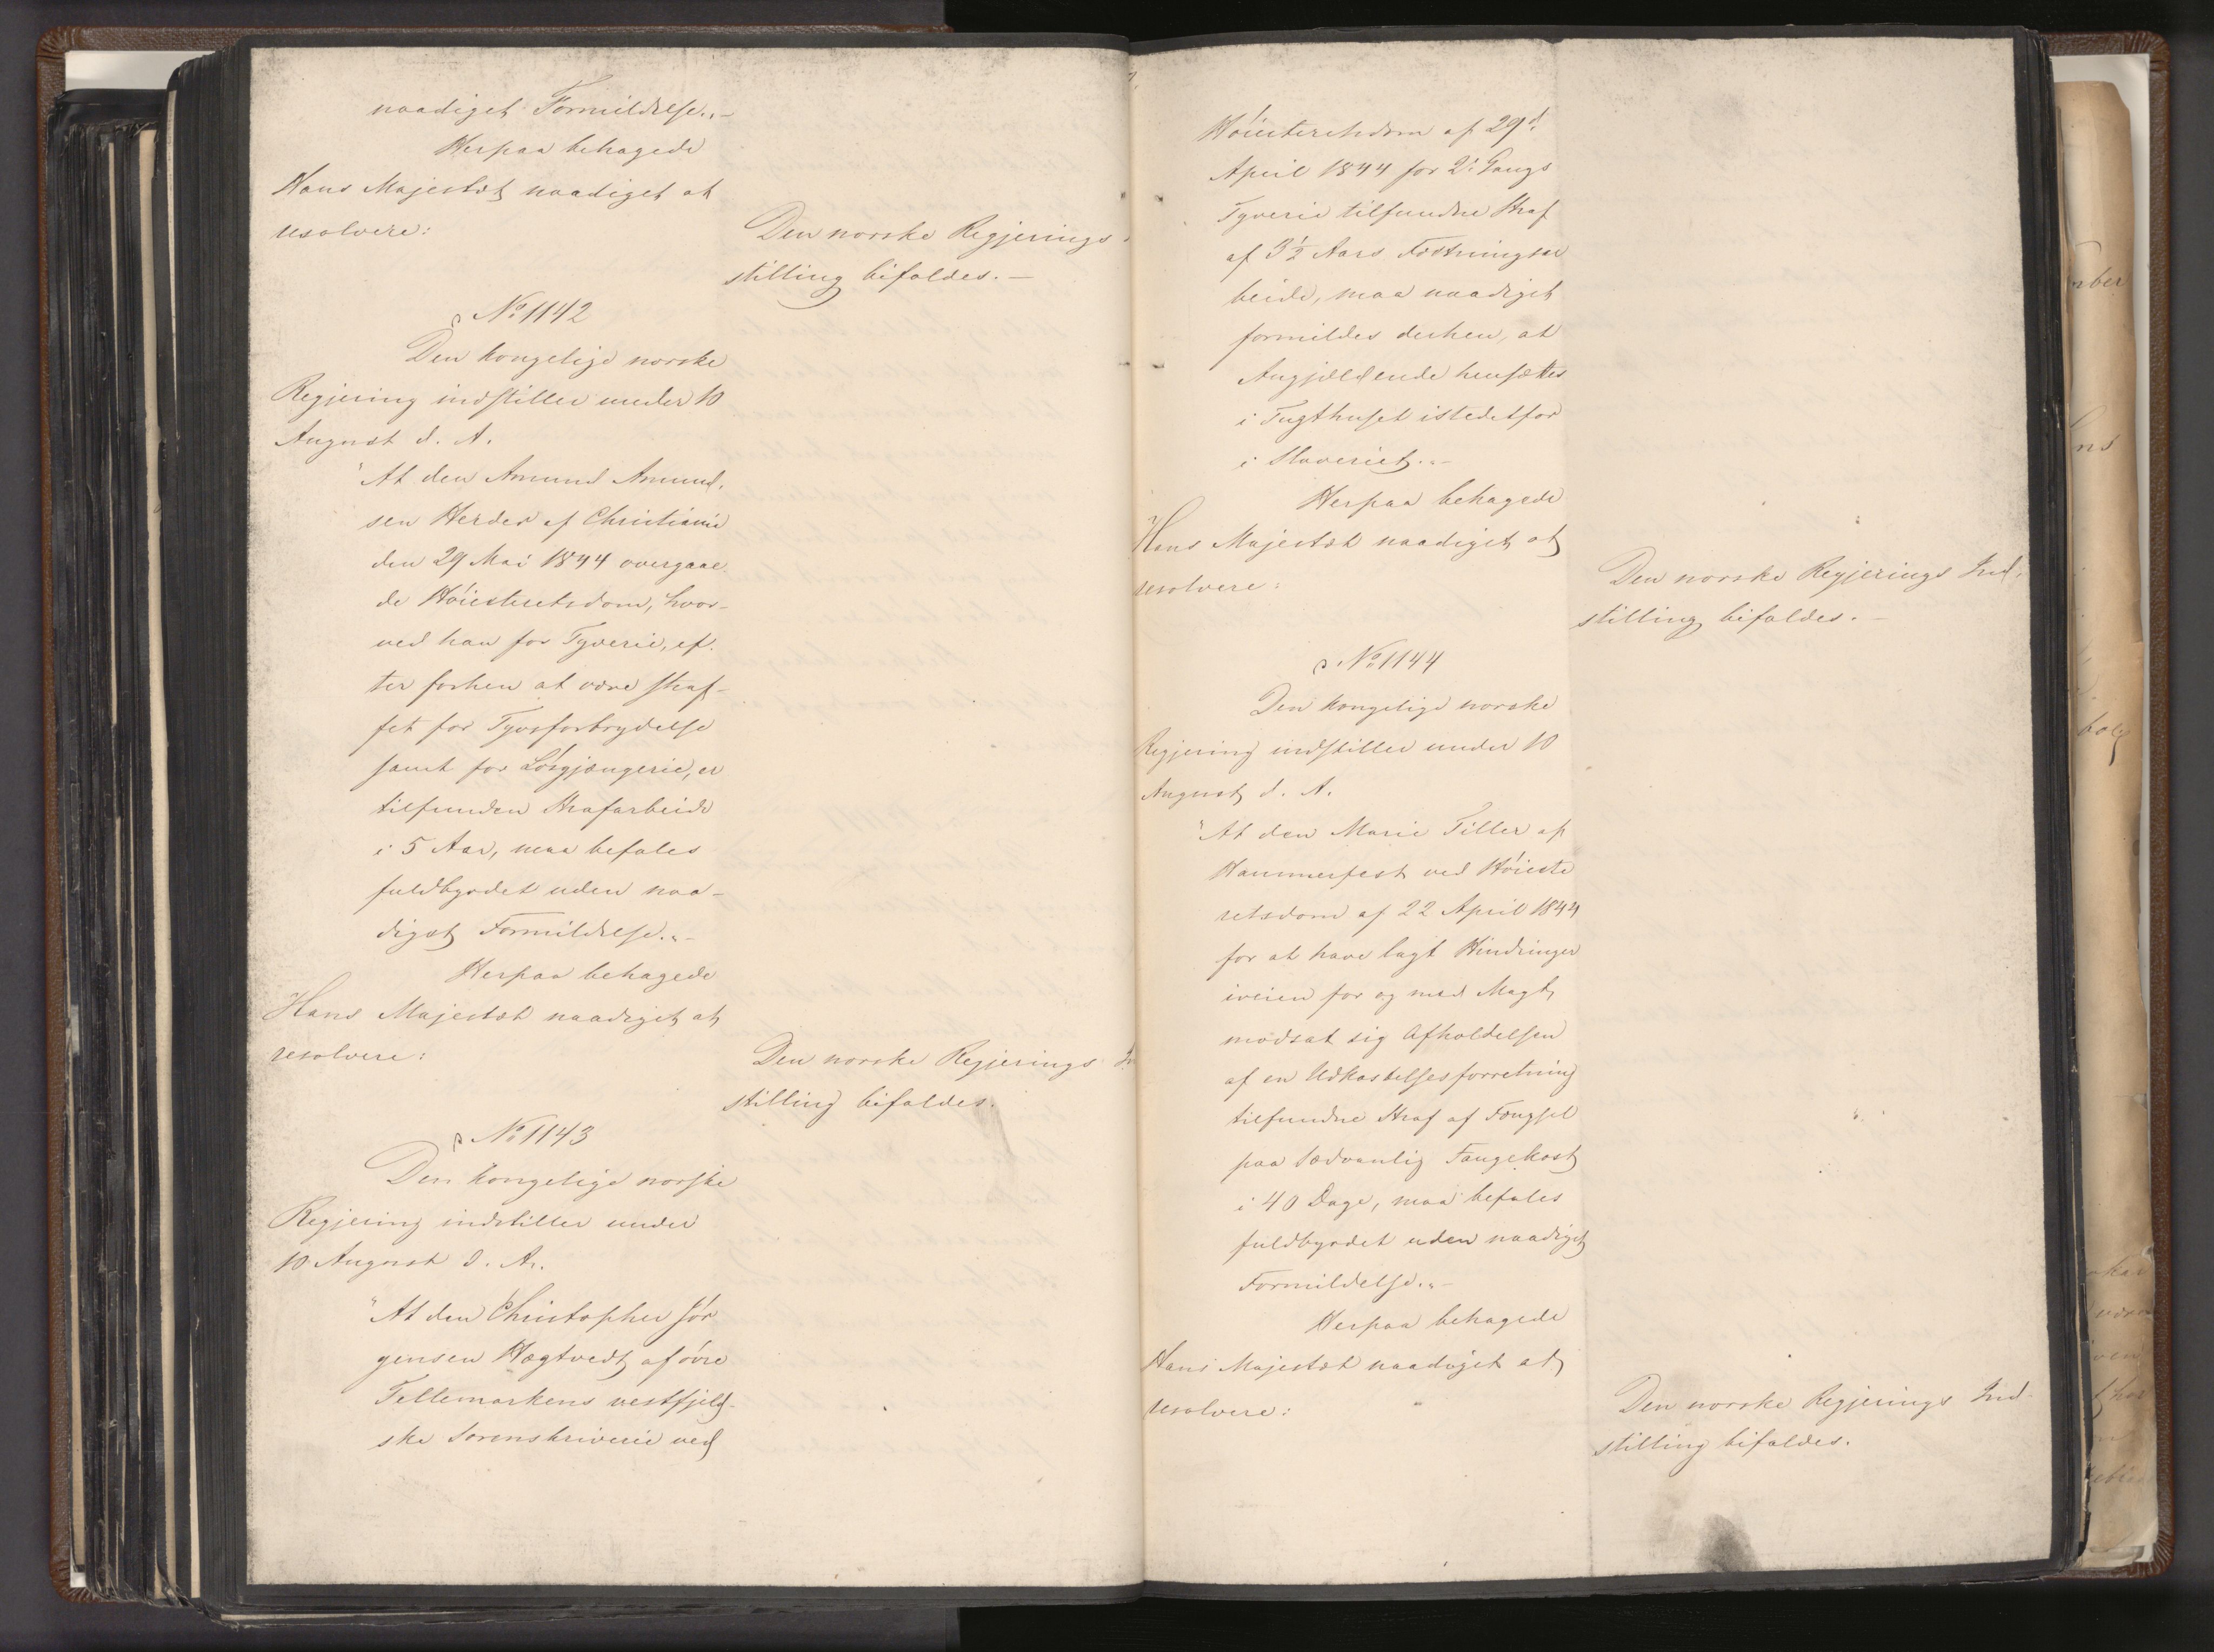 naadigst Formildelse."-
Herpaa behagede
Hans Majestæt naadigst at
resolvere:
Den norske Regjerings
stilling bifaldes.-
No 1142
Den kongelige norske
Regjering indstiller under 10
August d. A.
"At den Amund Amund-
sen Herder af Christiania
den 29 Mai 1844 overgaae-
de Höiesteretsdom, hvor-
ved han for Tyverie, ef-
ter forhen at være straf-
fet for Tyvsforbrydelse
samt for Lösgjængerie, er
tilfunden Strafarbeide
i 5 Aar, maa befales
fuldbyrdet uden naa-
digst Formildelse."-
Herpaa behagede
Hans Majestæt naadigst at
resolvere:
Den norske Regjerings
stilling bifaldes.
No 1143
Den kongelige norske
Regjering indstiller under
10 August d. A.
"At den Christopher Jör
gensen Hægtvedt af övre
Tellemarkens vestfjeld-
ske Sorenskriverie ved
Höiesteretsdom af 29d.
April 1844 for 2. Gangs
Tyverie tilfundne Straf
af 3½ Aars Fæstningsar
beide, maa naadigst
formildes derhen, at
Angjældende hensættes
i Tugthuset istedetfor
i Slaveriet."-
Herpaa behagede
Hans Majestæt naadigst at
resolvere:
Den norske Regjerings Ind-
stilling bifaldes.-
No 1144
Den kongelige norske
Regjering indstiller under 10
August d. A.
"At den Marie Tiller af
Hammerfest ved Höieste
retsdom af 22 April 1844
for at have lagt Hindringer
iveien for og med Magt
modsat sig Afholdelsen
af en Udkastelsesforretning
tilfundne Straf af Fængsel
paa sædvanlig Fangekost
i 40 Dage, maa befales
fuldbyrdet uden naadigst
Formildelse."-
Herpaa behagede
Hans Majestæt naadigst at
resolvere:
Den norske Regjerings Ind-
stilling bifaldes.